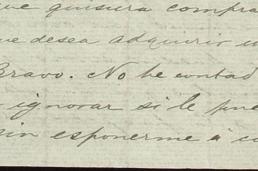 que quisiera compra
ue desea adquirir u
Bravo. No he contad
ignorar si le pue
sin esponerme á c